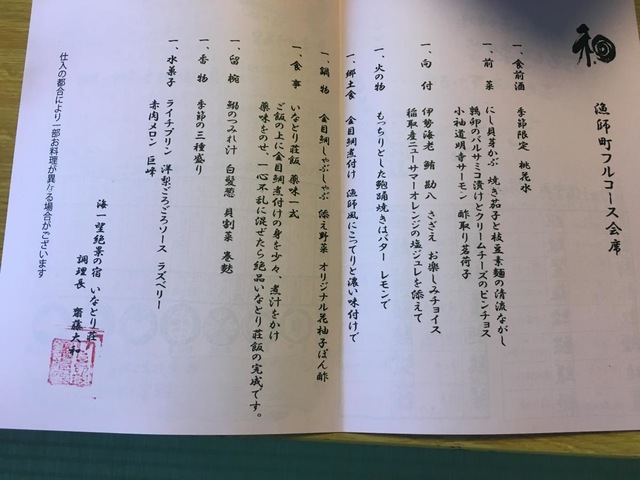 漁師町フルコース会席
一、食前酒　季節限定　桃花水
一、前菜　にし貝芽かぶ　焼き茄子と枝豆素麺の清流ながし
鶉卵のバルサミコ漬けとクリームチーズのピンチョス
小袖道明寺サーモン　酢取り茗荷子
一、向付　伊勢海老　鮪　勘八　さざえ　お楽しみチョイス
稲取産ニューサマーオレンジの塩ジュレを添えて
一、火の物　もっちりとした鮑踊焼きはバター　レモンで
一、郷土食　金目鯛煮付け　漁師風にこってりと濃い味付けで
一、鍋物　金目鯛しゃぶしゃぶ　添え野菜　オリジナル花柚子ぽん酢
一、食事　いなとり荘飯　薬味一式
ご飯の上に金目鯛煮付けの身を少々、煮汁をかけ
薬味をのせ、一心不乱に混ぜたら絶品いなとり荘飯の完成です。
一、留椀　鰯のつみれ汁　白髪葱　貝割菜　巻麩
一、香物　季節の三種盛り
一、水菓子　ライチプリン　洋梨ごろごろソース　ラズベリー
赤肉メロン　巨峰
海一望絶景の宿　いなとり荘
調理長　齋藤大和
仕入の都合により一部お料理が異なる場合がございます